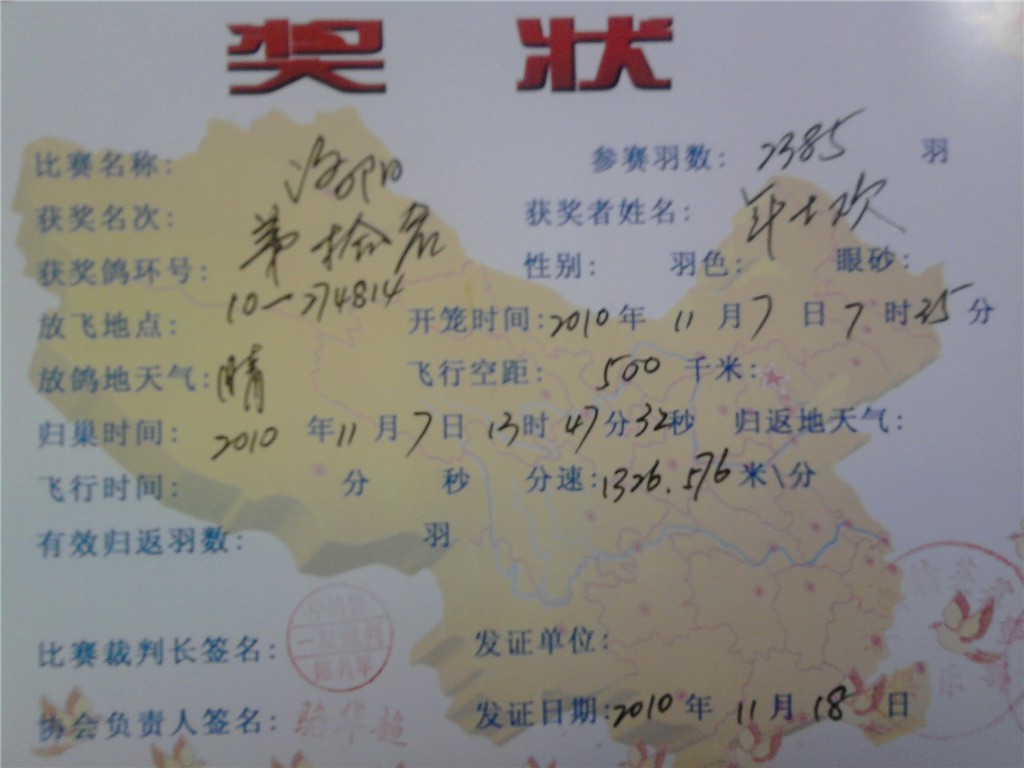 奖 状
比赛名称: 洛阳 参赛羽数: 2385 羽
获奖名次: 第拾名 获奖者姓名: 年士欢
获奖鸽环号: 10-274814 性别: 羽色: 眼砂:
放飞地点: 开笼时间:2010年 11月7日7时25分
放鸽地天气:晴 飞行空距: 500 千米:
归巢时间: 2010 年11月7日 13时47分32秒 归返地天气:
飞行时间: 分 秒 分速:1326.576米\分
有效归返羽数: 羽
比赛裁判长签名: 发证单位:
协会负责人签名: 骆华超 发证日期:2010年 11月18日